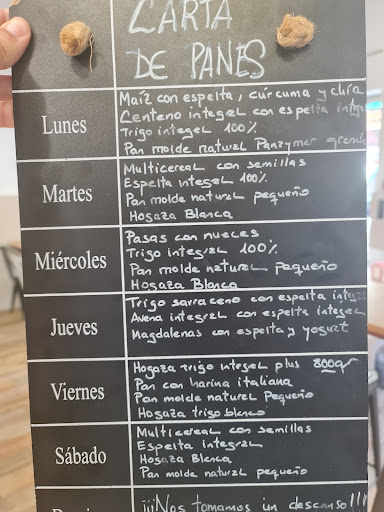 CARTA
DE PANES
Lunes
Maíz con espelta, cúrcuma y chía
Centeno integral con espelta integ
Trigo integral 100%
Pan molde natural Panzymer grande
Martes
Multicereal con semillas
Espelta integral 100%
Pan molde natural pequeño
Hogaza Blanca
Miércoles
Pasas con nueces
Trigo integral 100%
Pan molde natural pequeño
Hogaza Blanca
Jueves
Trigo sarraceno con espelta integral
Avena integral con espelta integral
Magdalenas con espelta y yogurt
Viernes
Hogaza trigo integral plus 800gr
Pan con harina italiana
Pan molde natural pequeño
Hogaza trigo blanco
Sábado
Multicereal con semillas
Espelta integral
Hogaza Blanca
Pan molde natural pequeño
¡¡¡Nos tomamos un descanso!!!